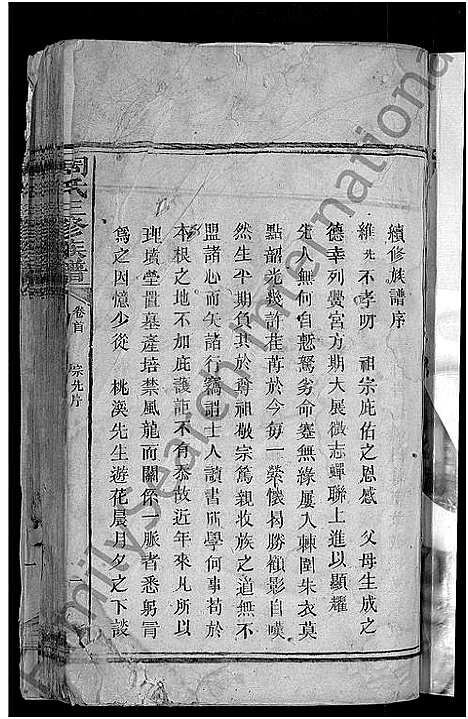 續修族譜序
維先不孝叨 祖宗庇佑之恩感 父母生成之
德幸列黌宮方期大展微志蟬聯上進以顯耀
先人無何自慙駑劣命蹇無緣屢入棘圍朱衣莫
點韶光幾許荏苒於今每一縈懷曷勝顧影自嘆
然生平期負其於尊祖敬宗篤親收族之道無不
盟諸心而矢諸行竊謂士人讀書所學何事苟於
本根之地不加庇護能不有忝故近年來凡所以
理墳塋置墓產培禁風龍而關係一脈者悉躬肩
為之因憶少從 桃溪先生遊花晨月夕之下談
周氏三修族譜 卷首 宗先序 一
FamilySearch International